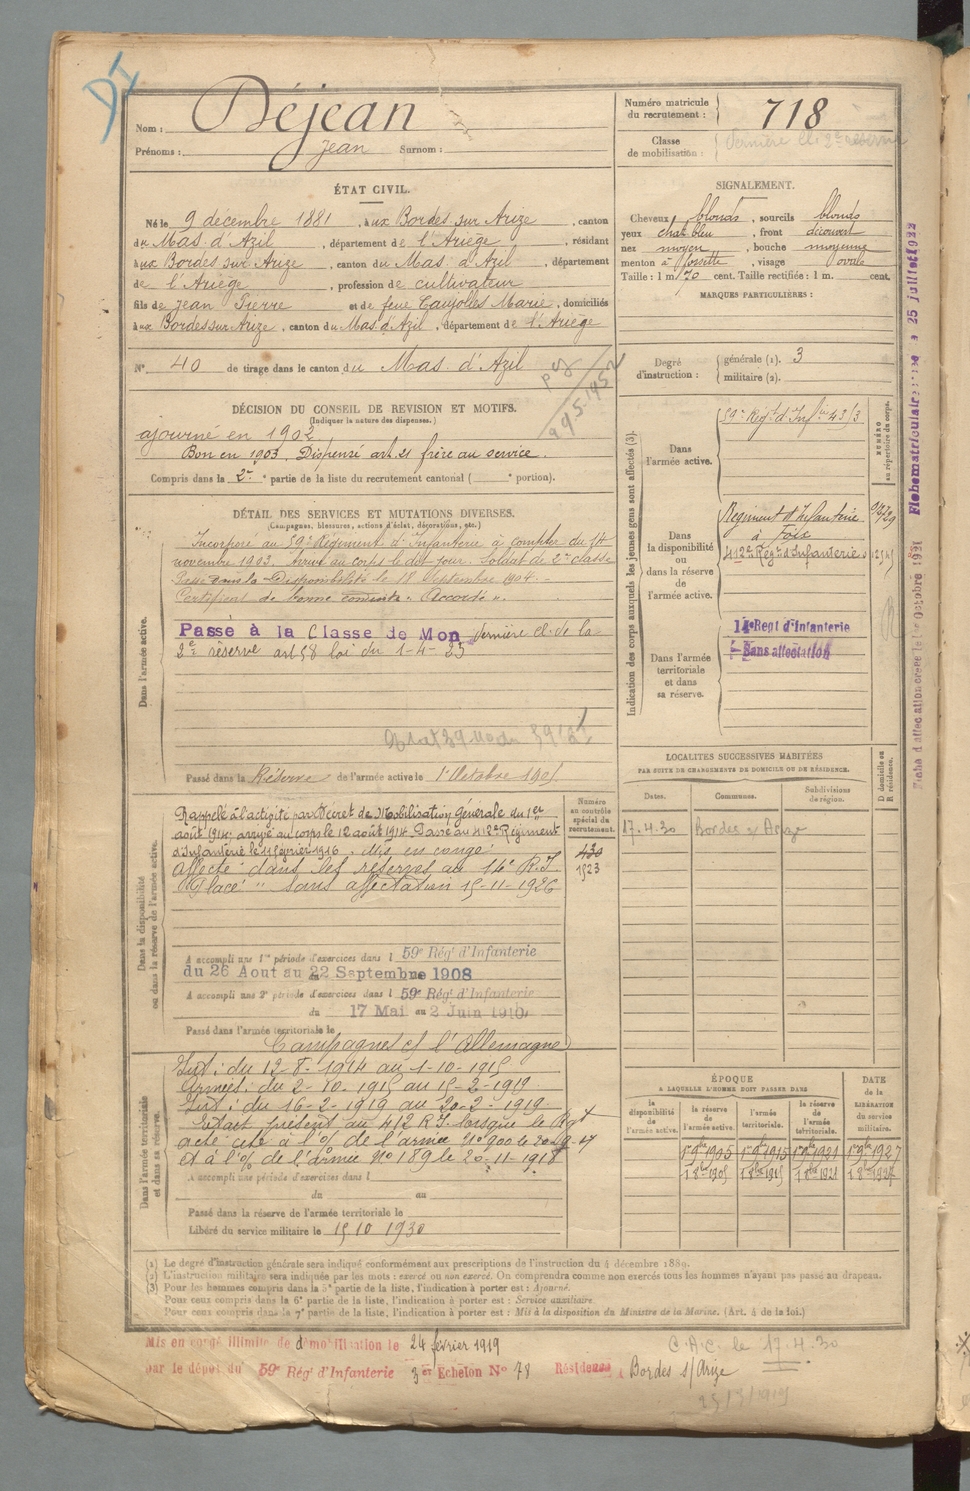 DI
Nom : Déjean
Prénoms : Jean Surnom :
Numéro matricule du recrutement : 718
Classe de mobilisation : dernière cl. 2e réserve
ÉTAT CIVIL.
Né le 9 décembre 1881, à ux Bordes sur Arize, canton
du Mas d'Azil, département de l'Ariège, résidant
à ux Bordes sur Arize, canton du Mas d'Azil, département
de l'Ariège, profession de cultivateur
fils de Jean Pierre et de feue Caujolles Marie, domiciliés
à ux Bordes sur Arize, canton du Mas d'Azil, département de l'Ariège
N° 40 de tirage dans le canton du Mas d'Azil
SIGNALEMENT.
Cheveux blonds, sourcils blonds
yeux chat. bleu, front découvert
nez moyen, bouche moyenne
menton à fossette, visage ovale
Taille : 1 m. 70 cent. Taille rectifiée : 1 m. cent.
MARQUES PARTICULIÈRES :
Degré d'instruction : générale (1). 3
militaire (2).
DÉCISION DU CONSEIL DE REVISION ET MOTIFS.
(Indiquer la nature des dispenses.)
ajourné en 1902
Bon en 1903. Dispensé art. 21 frère au service.
Compris dans la 2e partie de la liste du recrutement cantonal ( e portion).
DÉTAIL DES SERVICES ET MUTATIONS DIVERSES.
(Campagnes, blessures, actions d'éclat, décorations, etc.)
Dans l'armée active.
Incorporé au 59e Régiment d'Infanterie à compter du 14
novembre 1903. Arrivé au corps le dit jour. Soldat de 2e classe
Passé dans la Disponibilité le 18 Septembre 1904.
Certificat de bonne conduite "Accordé".
Passé à la Classe de Mon dernière cl. de la
2e réserve art 58 loi du 1-4-23
Passé dans la Réserve de l'armée active le 1er Octobre 1905
Indication des corps auxquels les jeunes gens sont affectés (3).
Dans l'armée active.
59e Régt d'Infie 43/3
NUMÉRO au répertoire du corps.
Dans la disponibilité ou dans la réserve de l'armée active.
Régiment d'Infanterie
à Foix
412e Régt d'Infanterie
Dans l'armée territoriale et dans sa réserve.
14e Regt d'Infanterie
Sans affectation
Dans la disponibilité ou dans la réserve de l'armée active.
Rappelé à l'activité par Décret de Mobilisation Générale du 1er
août 1914; arrivé au corps le 12 août 1914. Passé au 412e Régiment
d'Infanterie le 11 février 1916. Mis en congé.
Affecté dans les réserves au 14e R.I.
Placé "Sans affectation" 15-11-1926
Numéro au contrôle spécial du recrutement.
430
1523
A accompli une 1re période d'exercices dans l 59e Régt d'Infanterie
du 26 Aout au 22 Septembre 1908
A accompli une 2e période d'exercices dans l 59e Régt d'Infanterie
du 17 Mai au 2 Juin 1910
Passé dans l'armée territoriale le
Campagnes c/ l'Allemagne
Dans l'armée territoriale et dans sa réserve.
Int : du 12-8-1914 au 1-10-1915
Armées : du 2-10-1915 au 15-2-1919
Int : du 16-2-1919 au 20-2-1919
Était présent au 412 R.I. lorsque le Rgt
a été cité à l'O/ de l'armée N° 900 le 20-9-17
et à l'O/ de l'armée N° 189 le 20-11-1918
A accompli une période d'exercices dans l
du au
Passé dans la réserve de l'armée territoriale le
Libéré du service militaire le 15 10 1930
LOCALITES SUCCESSIVES HABITÉES
PAR SUITE DE CHANGEMENTS DE DOMICILE OU DE RÉSIDENCE.
Dates. Communes. Subdivisions de région. D domicile ou R résidence.
17.4.30 Bordes s/ Arize
ÉPOQUE
A LAQUELLE L'HOMME DOIT PASSER DANS
la disponibilité de l'armée active. la réserve de l'armée active. l'armée territoriale. la réserve de l'armée territoriale.
DATE de la LIBÉRATION du service militaire.
1er 9bre 1905 1er 9bre 1915 1er 9bre 1921 1er 9bre 1927
1 8bre 1905 1 8bre 1915 1 8bre 1921 1 8bre 1927
(1) Le degré d'instruction générale sera indiqué conformément aux prescriptions de l'instruction du 4 décembre 1889.
(2) L'instruction militaire sera indiquée par les mots : exercé ou non exercé. On comprendra comme non exercés tous les hommes n'ayant pas passé au drapeau.
(3) Pour les hommes compris dans la 5e partie de la liste, l'indication à porter est : Ajourné.
Pour ceux compris dans la 6e partie de la liste, l'indication à porter est : Service auxiliaire.
Pour ceux compris dans la 7e partie de la liste, l'indication à porter est : Mis à la disposition du Ministre de la Marine. (Art. 4 de la loi.)
Mis en congé illimité de démobilisation le 24 février 1919
par le dépôt du 59e Rég. d'Infanterie 3er Echelon N° 78 Résidence Bordes s/Arize
C.A.C. le 17.4.30